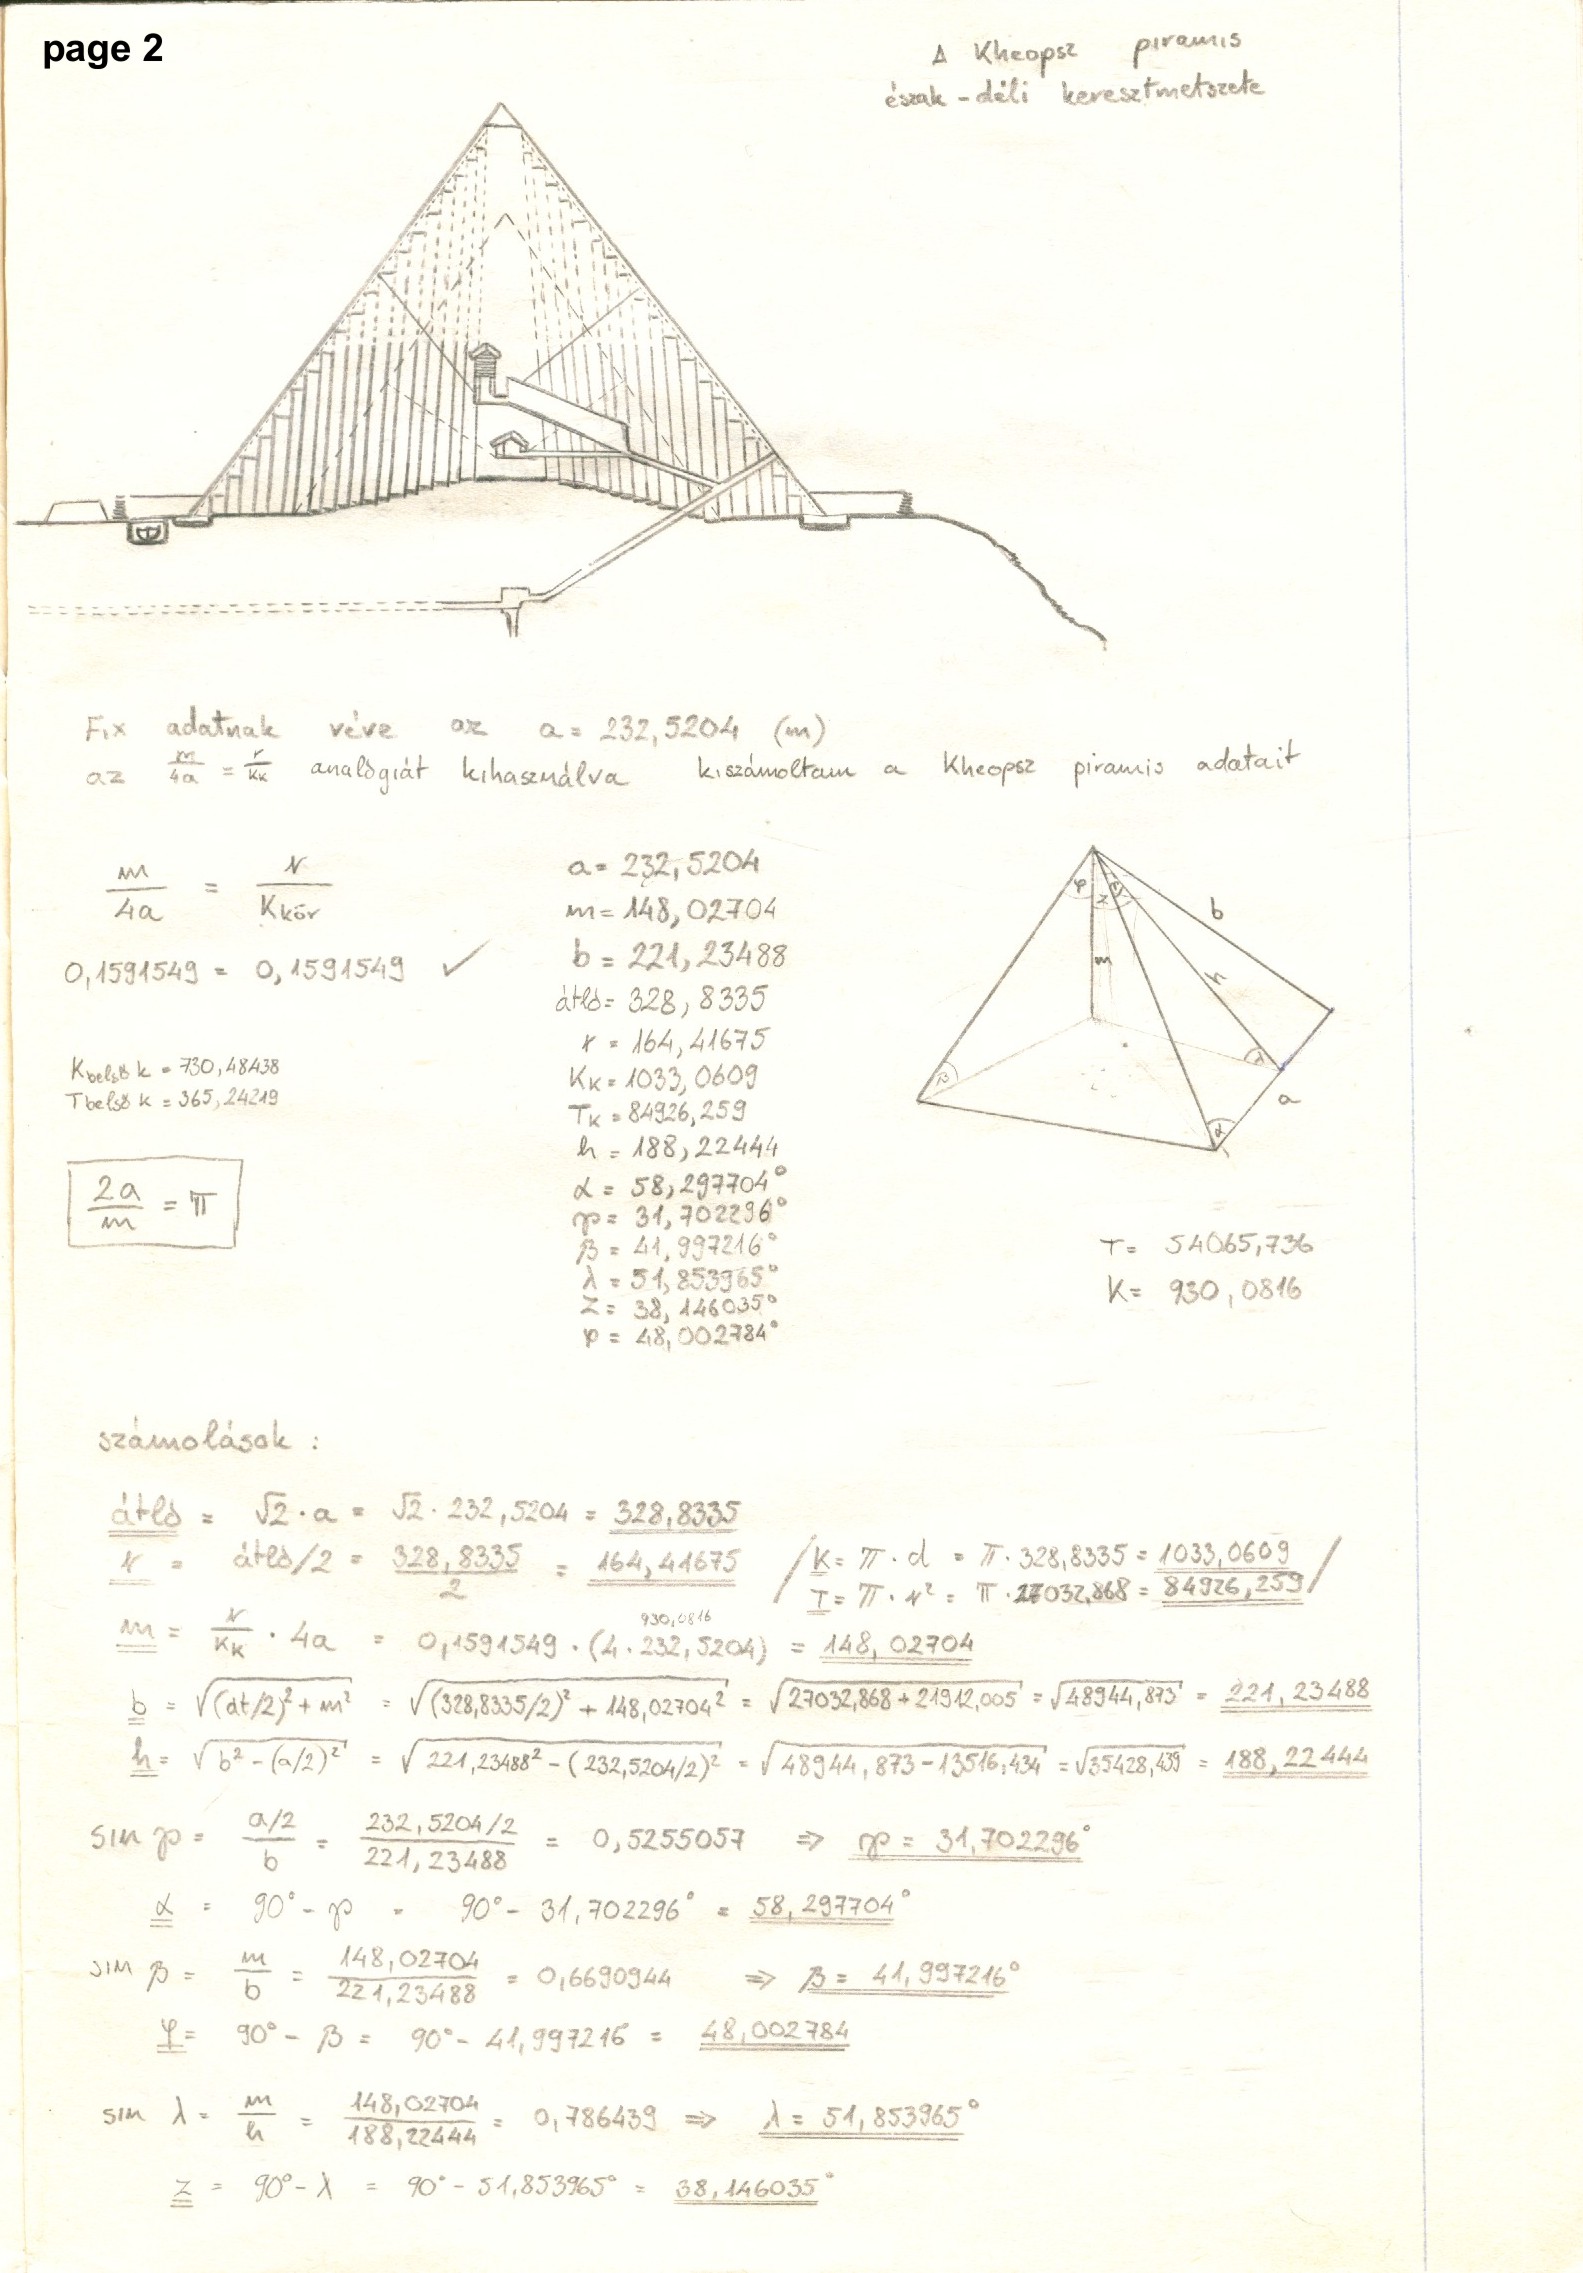 page 2
A Kheopsz piramis
észak-déli keresztmetszete
Fix adatnak véve az a = 232,5204 (m)
az m/4a = r/Kk analógiát kihasználva kiszámoltam a Kheopsz piramis adatait
m/4a = r/Kkör
0,1591549 = 0,1591549 ✓
Kbelső k = 730,48438
Tbelső k = 365,24219
2a/m = π
a = 232,5204
m = 148,02704
b = 221,23488
átló = 328,8335
r = 164,41675
Kk = 1033,0609
Tk = 84926,259
h = 188,22444
α = 58,297704°
γ = 31,702296°
β = 41,997216°
λ = 51,853965°
z = 38,146035°
φ = 48,002784°
φ
z
γ
b
m
h
β
λ
a
α
T = 54065,736
K = 930,0816
számolások :
átló = √2 · a = √2 · 232,5204 = 328,8335
r = átló/2 = 328,8335/2 = 164,41675 / K = π · d = π · 328,8335 = 1033,0609 /
T = π · r² = π · 27032,868 = 84926,259
930,0816
m = r/Kk · 4a = 0,1591549 · (4 · 232,5204) = 148,02704
b = √((át/2)² + m²) = √((328,8335/2)² + 148,02704²) = √(27032,868 + 21912,005) = √48944,873 = 221,23488
h = √(b² - (a/2)²) = √(221,23488² - (232,5204/2)²) = √(48944,873 - 13516,434) = √35428,439 = 188,22444
sin γ = (a/2)/b = (232,5204/2)/221,23488 = 0,5255057 ⇒ γ = 31,702296°
α = 90° - γ = 90° - 31,702296° = 58,297704°
sin β = m/b = 148,02704/221,23488 = 0,6690944 ⇒ β = 41,997216°
φ = 90° - β = 90° - 41,997216 = 48,002784
sin λ = m/h = 148,02704/188,22444 = 0,786439 ⇒ λ = 51,853965°
z = 90° - λ = 90° - 51,853965° = 38,146035°